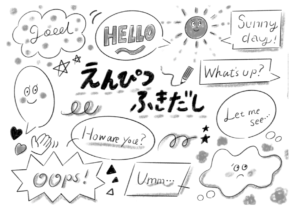 Good
HELLO
Sunny
day!
えんぴつ
ふきだし
What's up?
How are you?
Let me
see...
OOPS!
Umm...